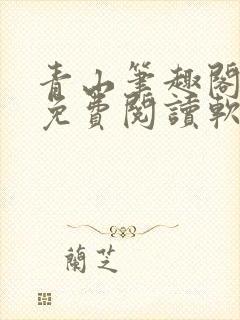 青山筆趣閣
免費閱讀軟
蘭芝